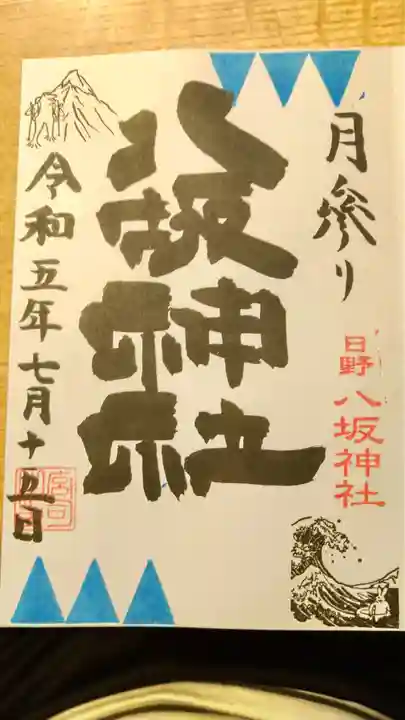 月参り
日野
八坂神社
八坂神社
令和五年七月十五日
宮司